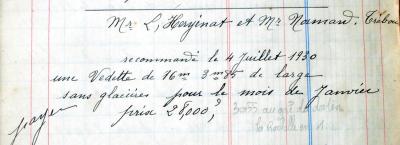 Mr L. Herjénat et Mr Namard. Trébou
recommandé le 4 Juillet 1930
une Vedette de 16m 3m85 de large
sans glacières pour le mois de Janvier
payer prix 28,000,